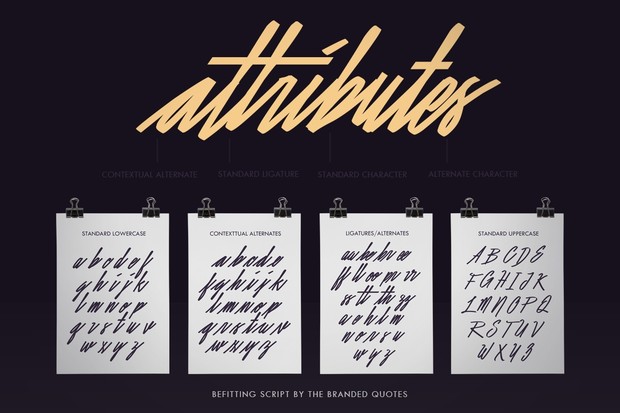 attributes
CONTEXTUAL ALTERNATE STANDARD LIGATURE STANDARD CHARACTER ALTERNATE CHARACTER
STANDARD LOWERCASE
a b c d e f
g h i j k
l m n o p
q r s t u v
w x y z
CONTEXTTUAL ALTERNATES
a b c d e
f g h i j k
l m n o p
q r s t u v
w x y z
LIGATURES/ALTERNATES
ff ll oo pp rr
ss tt th zz
a o h l m
n o r s u
w y z
STANDARD UPPERCASE
A B C D E
F G H I J K
L M N O P Q
R S T U V
W X Y Z
BEFITTING SCRIPT BY THE BRANDED QUOTES